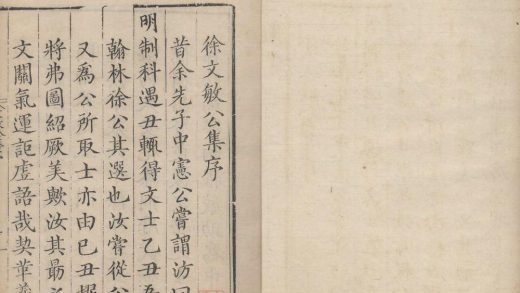 徐文敏公集序
昔余先子中憲公嘗謂汸曰
明制科遇丑輒得文士乙丑吾
翰林徐公其選也汝嘗從公
又爲公所取士亦由已丑擢
將弗圖紹厥美歟汝其最
文關氣運詎虛語哉契華